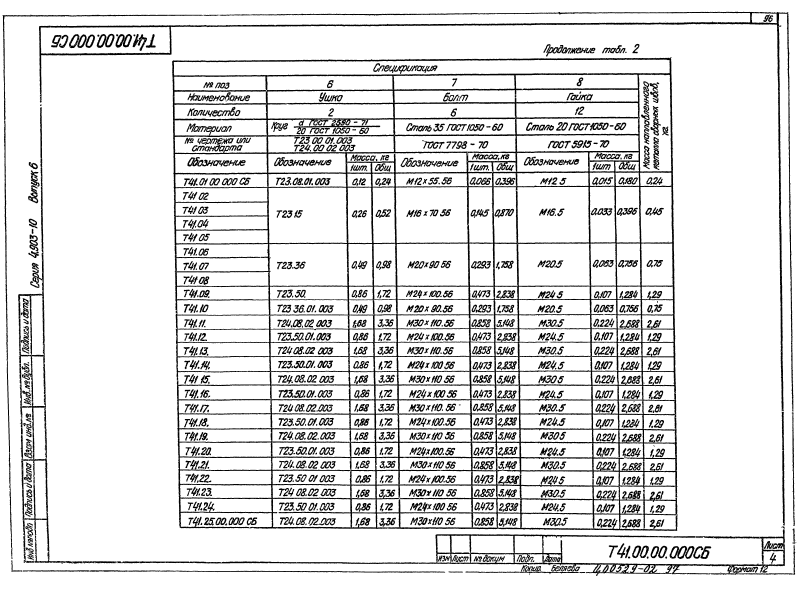 96
Т41.00.00.000СБ
Продолжение табл. 2
Серия 4.903-10 Выпуск 6
Спецификация
№ поз 6 7 8 Масса наплавленного металла сварных швов, кг.
Наименование Ушко Болт Гайка
Количество 2 6 12
Материал Круг d ГОСТ 2590-71 / 20 ГОСТ 1050-60 Сталь 35 ГОСТ 1050-60 Сталь 20 ГОСТ 1050-60
№ чертежа или стандарта Т23 00 01. 003 Т24. 00 02 003 ГОСТ 7798-70 ГОСТ 5915-70
Обозначение Обозначение Масса, кг 1шт. Общ Обозначение Масса, кг 1шт. Общ Обозначение Масса, кг 1шт Общ
Т41. 01 00 000 СБ Т23.08.01.003 0,12 0,24 М12×55.56 0,066 0,396 М12.5 0,015 0,180 0,24
Т41 02
Т41 03 Т23 15 0,26 0,52 М16×70.56 0,145 0,870 М16.5 0,033 0,396 0,45
Т41. 04
Т41 05
Т41.06
Т41. 07 Т23.36 0,49 0,98 М20×90 56 0,293 1,758 М20.5 0,063 0,756 0,75
Т41 08
Т41.09. Т23.50. 0,86 1,72 М24×100.56 0,473 2,838 М24.5 0,107 1,284 1,29
Т41.10 Т23 36.01.003 0,49 0,98 М20×90.56 0,293 1,758 М20.5 0,063 0,756 0,75
Т41.11. Т24.08.02 003 1,68 3,36 М30×110.56 0,858 5,148 М30.5 0,224 2,688 2,61
Т41.12. Т23.50.01.003 0,86 1,72 М24×100.56 0,473 2,838 М24.5 0,107 1,284 1,29
Т41.13. Т24 08.02.003 1,68 3,36 М30×110.56 0,858 5,148 М30.5 0,224 2,688 2,61
Т41.14. Т23.50.01.003 0,86 1,72 М24×100 56 0,473 2,838 М24.5 0,107 1,284 1,29
Т41 15. Т24.08.02 003 1,68 3,36 М30×110.56 0,858 5,148 М30.5 0,224 2,688 2,61
Т41.16. Т23.50.01.003 0,86 1,72 М24×100 56 0,473 2,838 М24.5 0,107 1,284 1,29
Т41.17. Т24.08.02.003 1,68 3,36 М30×110.56 0,858 5,148 М30.5 0,224 2,688 2,61
Т41.18. Т23.50.01.003 0,86 1,72 М24×100.56 0,473 2,838 М24.5 0,107 1,284 1,29
Т41.19. Т24 08.02.003 1,68 3,36 М30×110 56 0,858 5,148 М30 5 0,224 2,688 2,61
Т41.20. Т23.50.01.003 0,86 1,72 М24×100.56 0,473 2,838 М24.5 0,107 1,284 1,29
Т41.21. Т24.08.02.003 1,68 3,36 М30×110 56 0,858 5,148 М30.5 0,224 2,688 2,61
Т41.22. Т23.50 01 003 0,86 1,72 М24×100.56 0,473 2,838 М24.5 0,107 1,284 1,29
Т41.23. Т24 08 02.003 1,68 3,36 М30×110 56 0,858 5,148 М30.5 0,224 2,688 2,61
Т41.24. Т23.50 01 003 0,86 1,72 М24×100 56 0,473 2,838 М24.5 0,107 1,284 1,29
Т41.25.00.000 СБ Т24.08.02.003 1,68 3,36 М30×110 56 0,858 5,148 М30.5 0,224 2,688 2,61
Подпись и дата
Инв.№ дубл.
Взам инв.№
Подпись и дата
Инв №подл
Т41.00.00.000СБ
Лист
4
Изм Лист № докум Подп. Дата
Копир. Беляева Ц00529-02 97 Формат 12